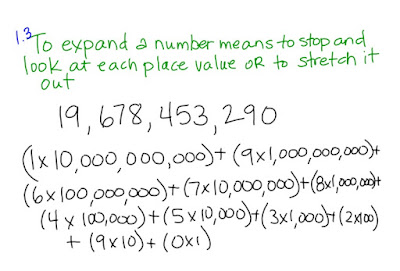 1.3
To expand a number means to stop and
look at each place value OR to stretch it
out
19,678,453,290
(1x10,000,000,000)+(9x1,000,000,000)+
(6x100,000,000)+(7x10,000,000)+(8x1,000,000)+
(4x100,000)+(5x10,000)+(3x1,000)+(2x100)
+(9x10)+(0x1)